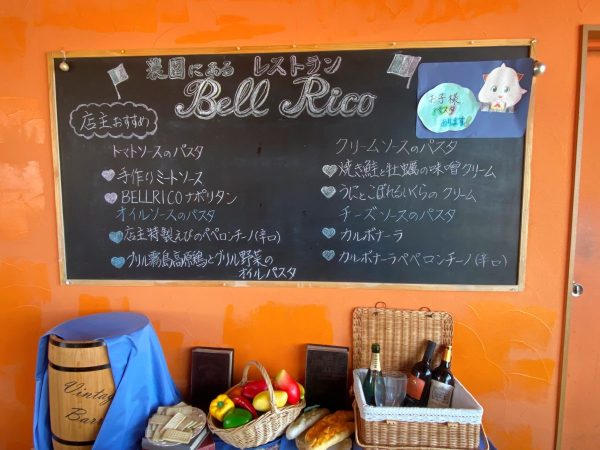 農園にある レストラン
Bell Rico
お子様
パスタ
あります
店主おすすめ
トマトソースのパスタ
手作りミートソース
BELLRICOナポリタン
オイルソースのパスタ
店主特製えびのペペロンチーノ(辛口)
グリル霧島高原鶏とグリル野菜の
オイルパスタ
クリームソースのパスタ
焼き鮭と牡蠣の味噌クリーム
うにとこぼれるいくらのクリーム
チーズソースのパスタ
カルボナーラ
カルボナーラペペロンチーノ(辛口)
Vintage